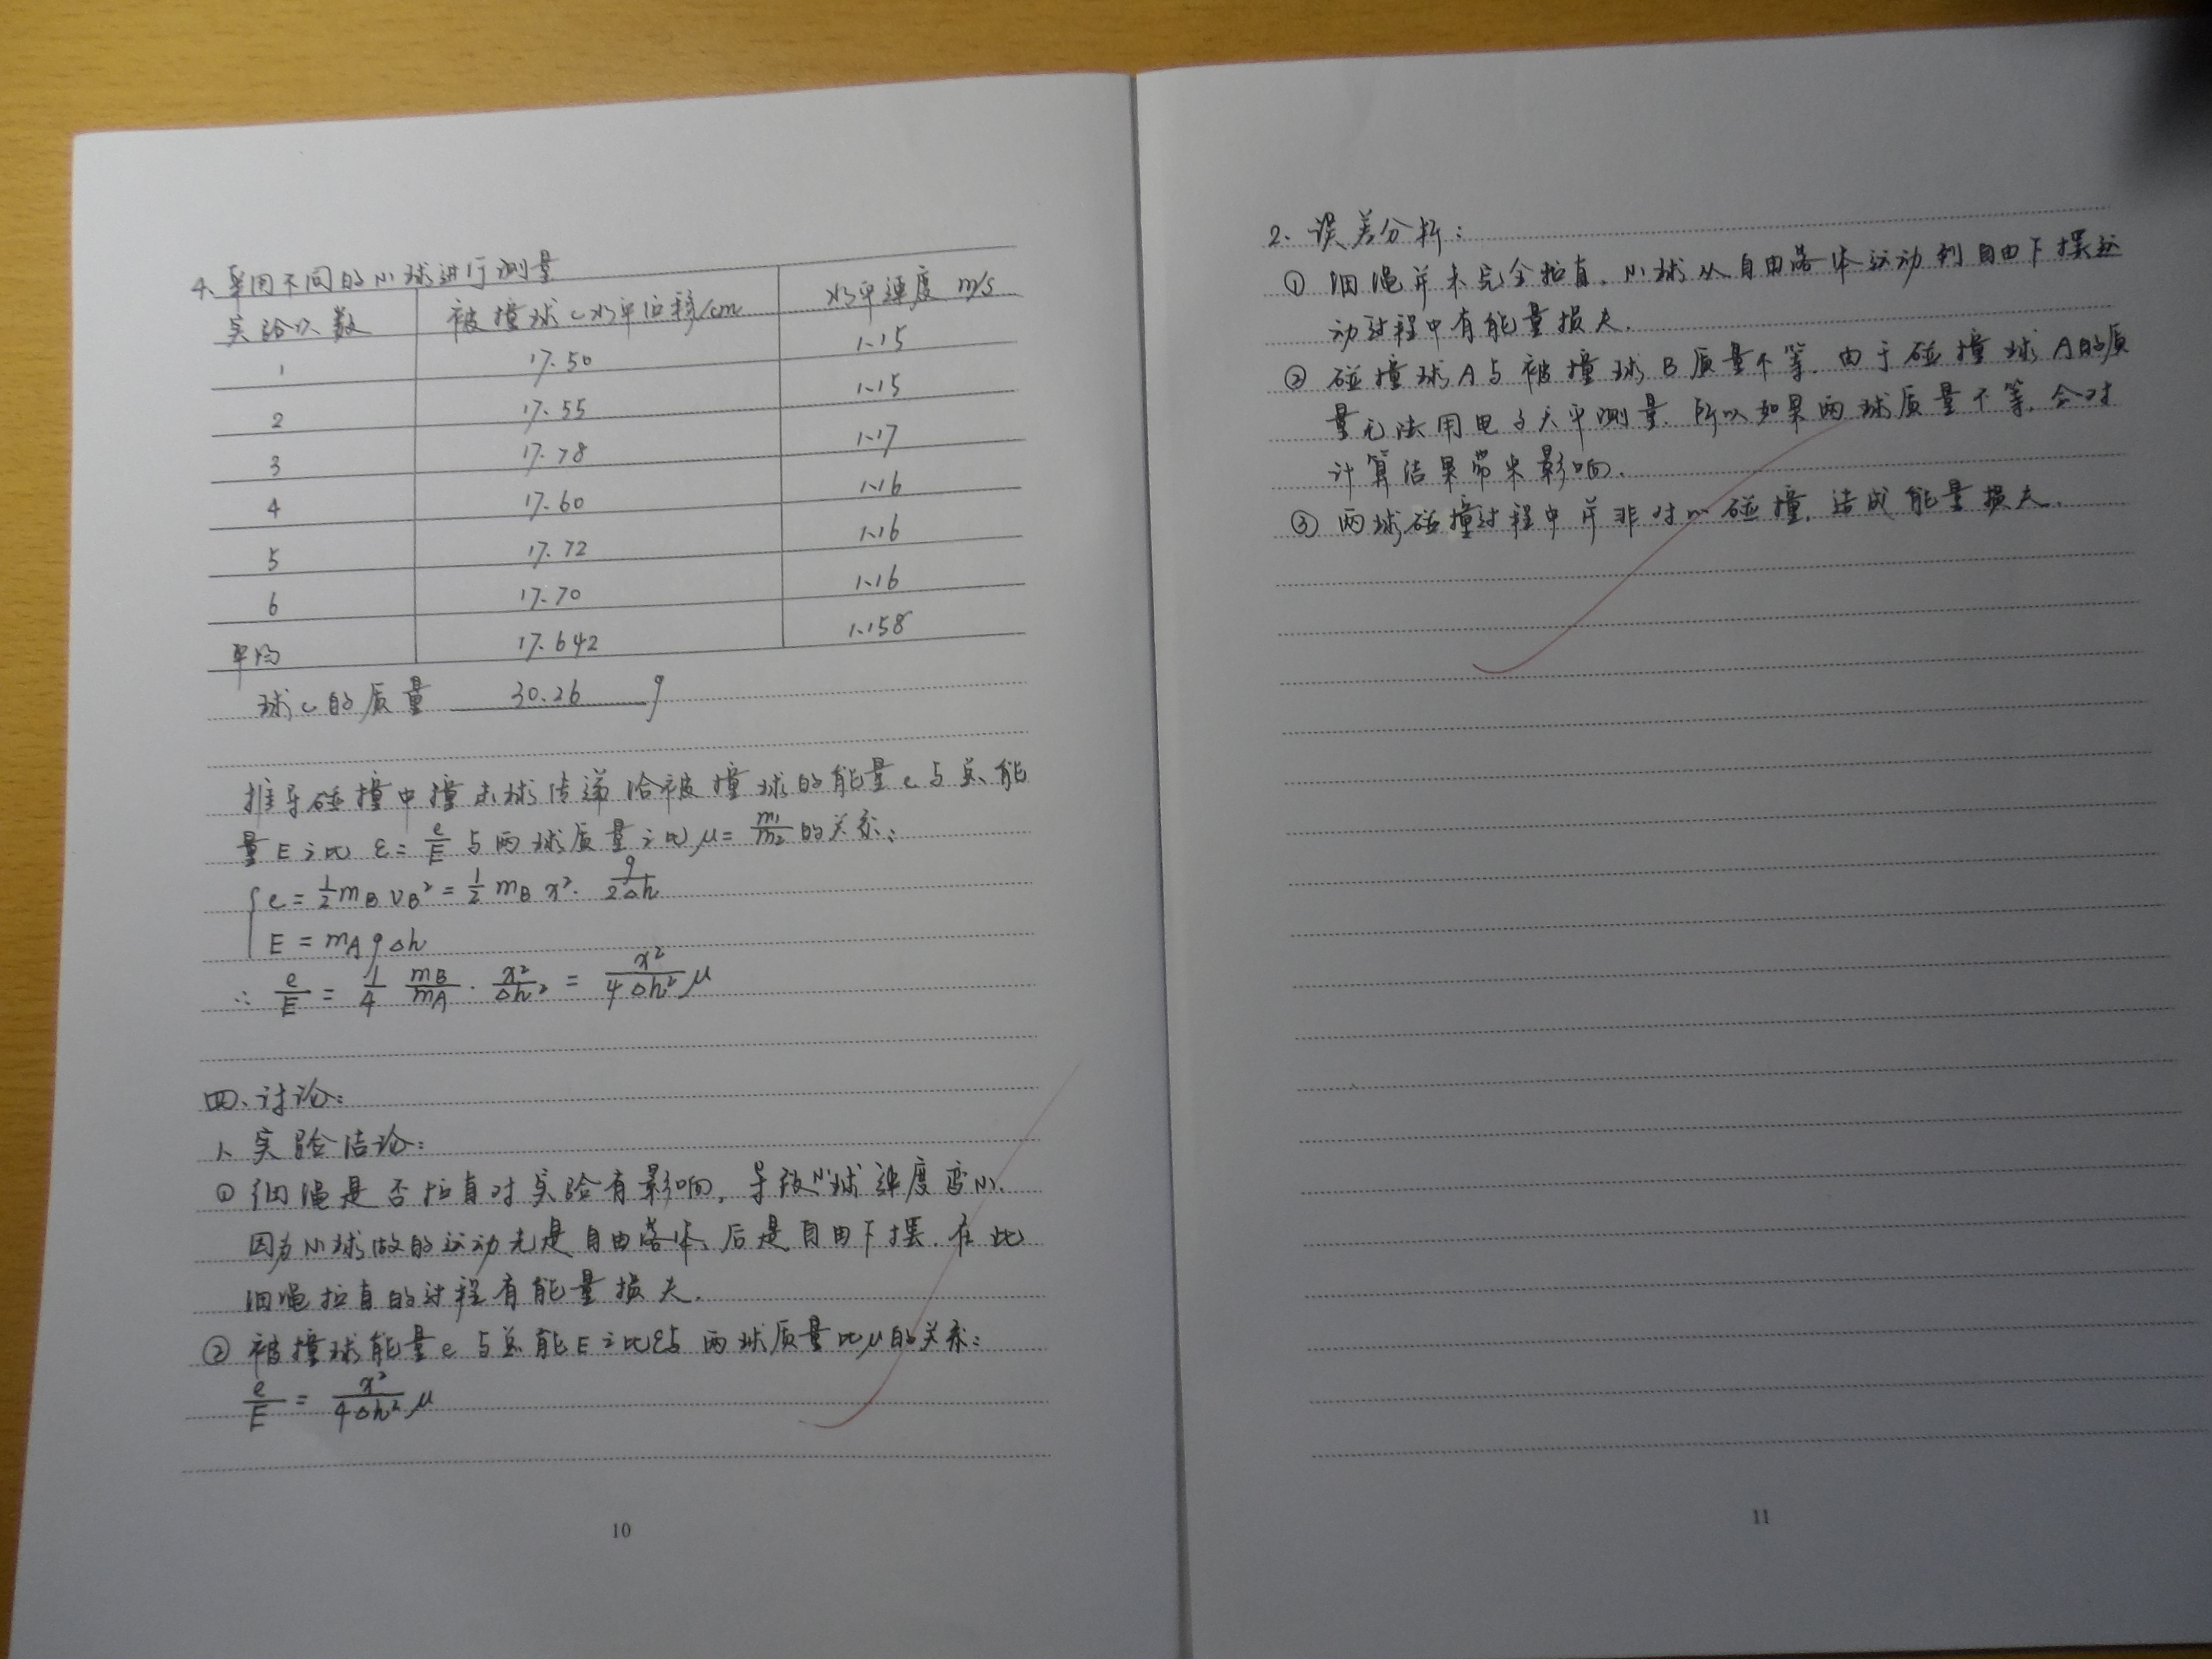 4、采用不同的小球进行测量
实验次数 被撞球C水平位移/cm 水平速度 m/s
1 17.50 1.15
2 17.55 1.15
3 17.78 1.17
4 17.60 1.16
5 17.72 1.16
6 17.70 1.16
平均 17.642 1.158
球C的质量 30.26 g
推导碰撞中撞击球传递给被撞球的能量e与总能
量E之比 ε= e/E 与两球质量之比μ= m₁/m₂ 的关系:
{ e = ½ mB vB² = ½ mB x² · g/2Δh
E = mA gΔh
∴ e/E = 1/4 mB/mA · x²/Δh² = x²/4Δh² μ
四、讨论:
1、实验结论:
① 细绳是否拉直对实验有影响,导致小球速度变小.
因为小球做的运动先是自由落体、后是自由下摆.在此
细绳拉直的过程有能量损失.
② 被撞球能量e与总能E之比ε与两球质量比μ的关系:
e/E = x²/4Δh² μ
10
2、误差分析:
① 细绳并未完全拉直.小球从自由落体运动到自由下摆运
动过程中有能量损失.
② 碰撞球A与被撞球B质量不等.由于碰撞球A的质
量无法用电子天平测量.所以如果两球质量不等,会对
计算结果带来影响.
③ 两球碰撞过程中并非对心碰撞,造成能量损失.
11